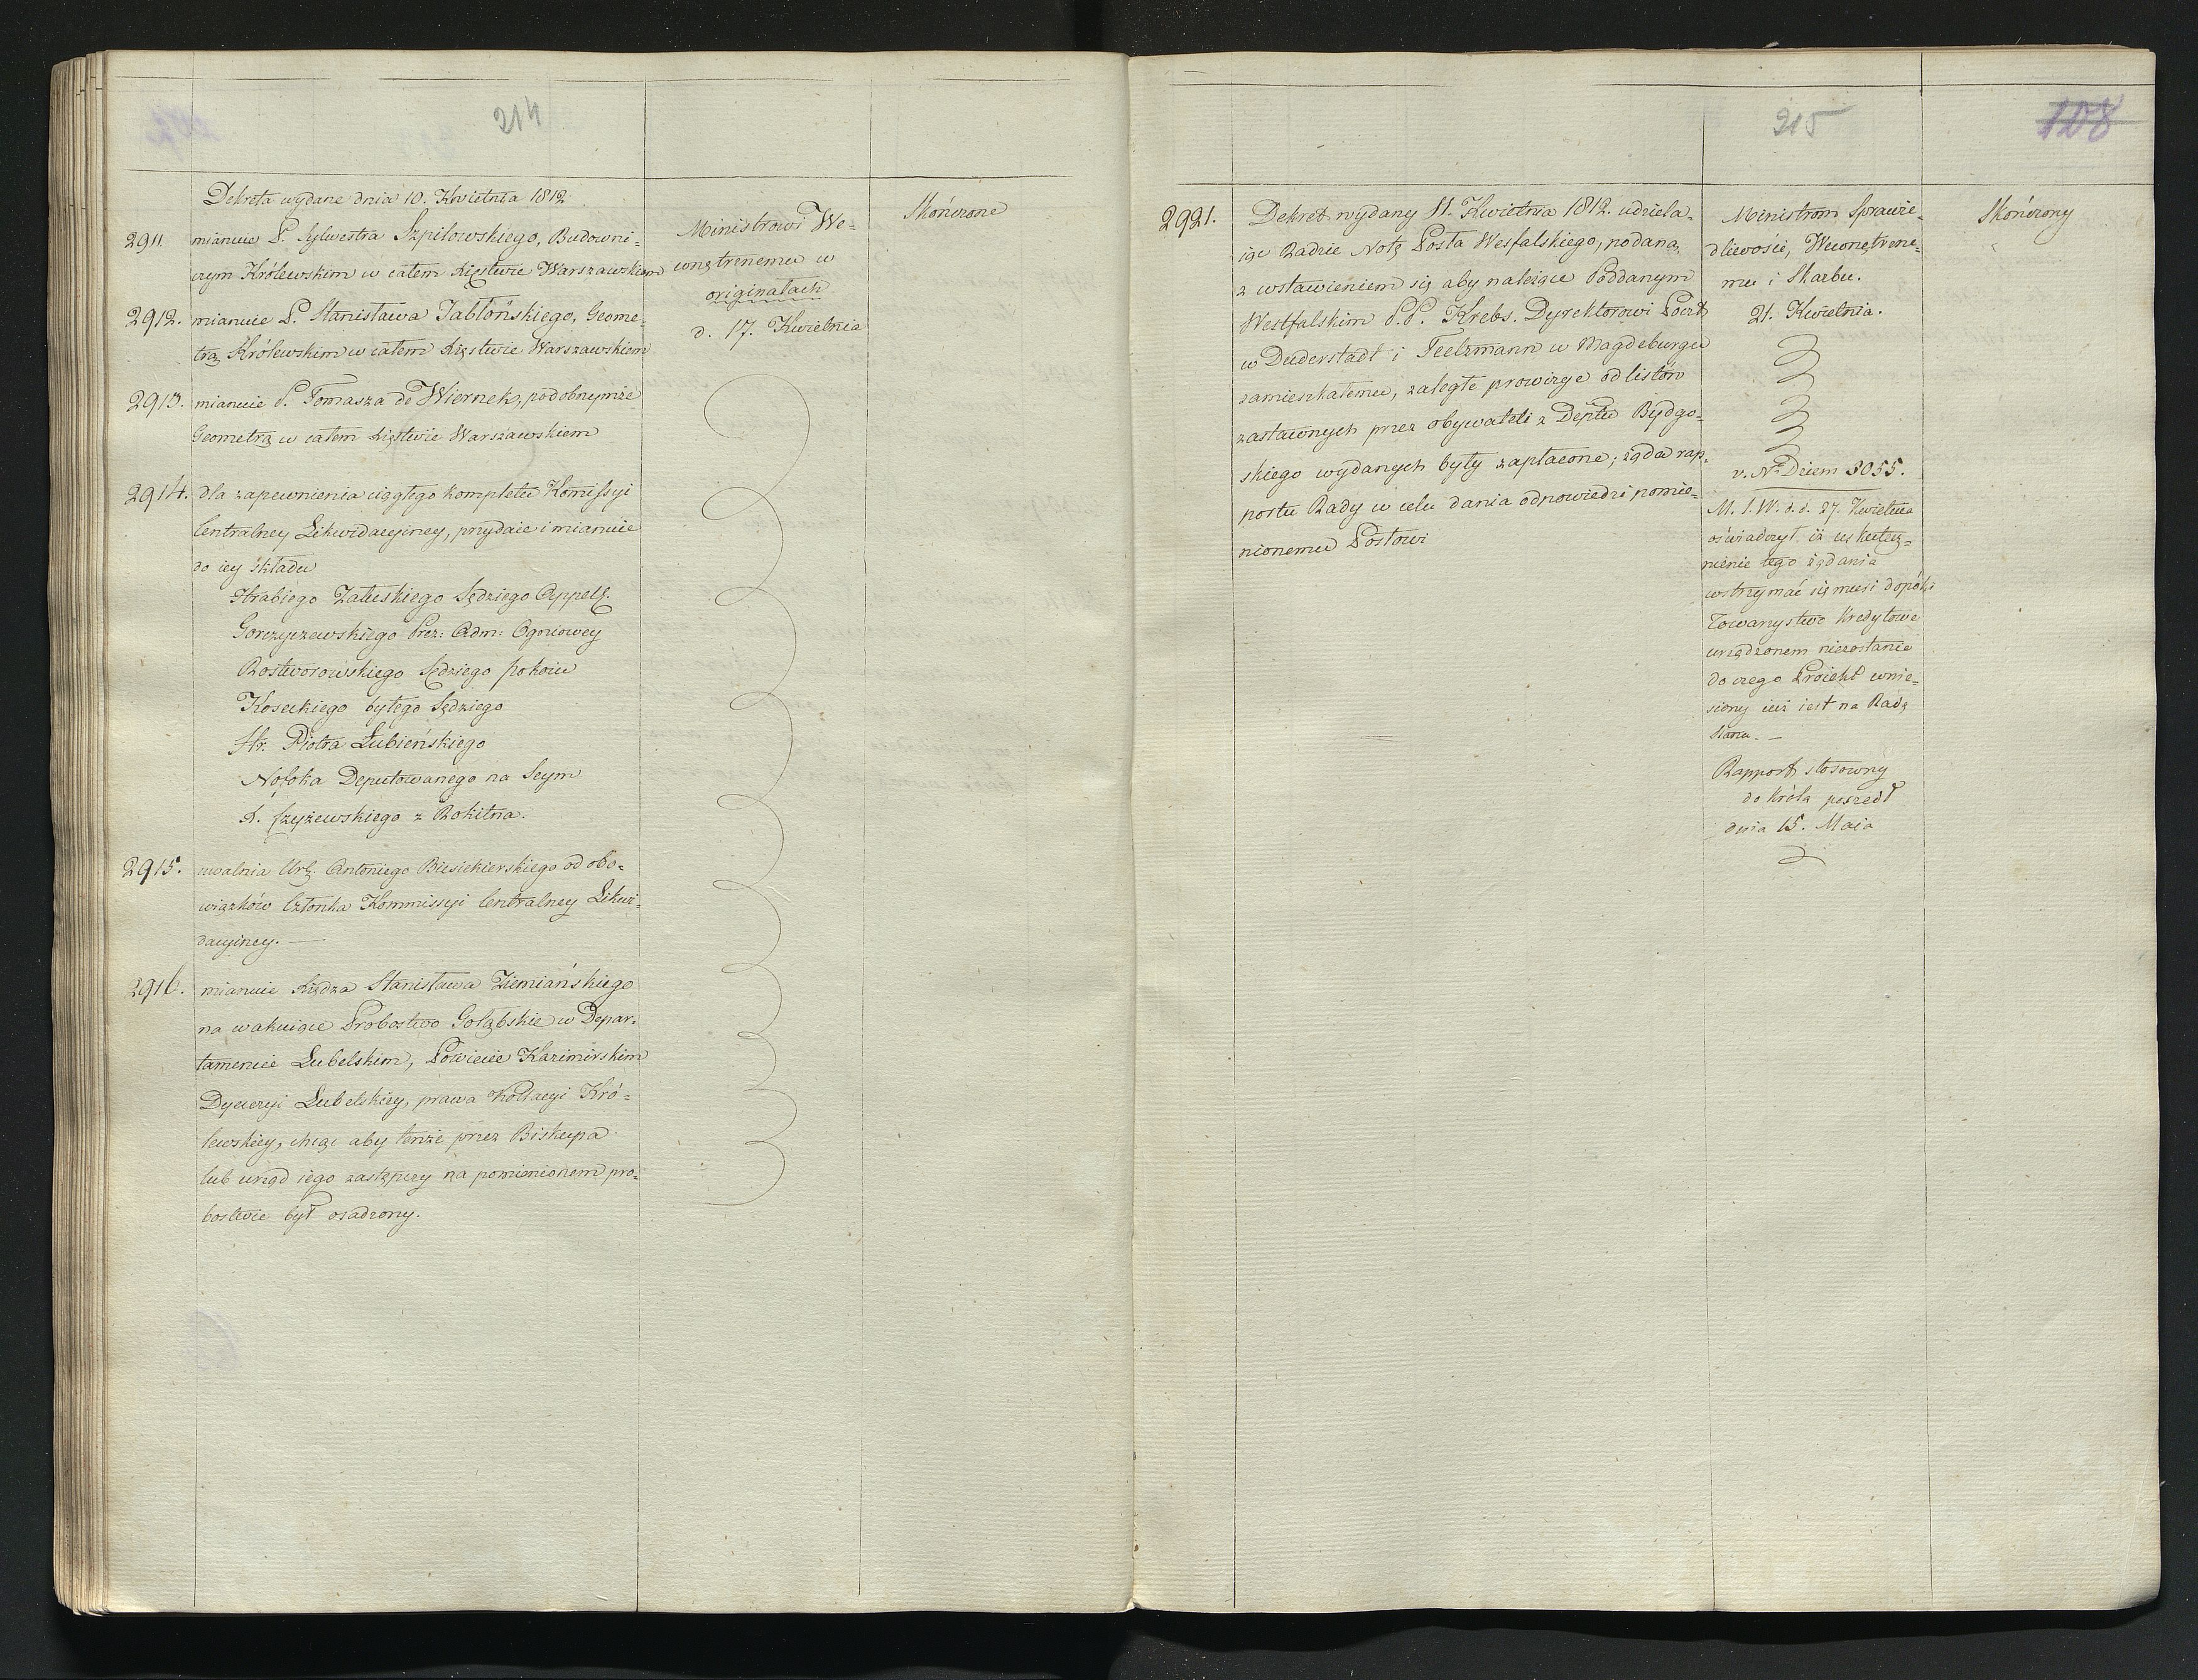 214
Dekreta wydane dnia 10. Kwietnia 1812
2911. mianuie P. Sylwestra Szpilowskiego, Budowni=
czym Królewskim w całem Xięstwie Warszawskiem
2912. mianuie P. Stanisława Jabłońskiego, Geome=
trą Królewskim w całem Xięstwie Warszawskiem
2913. mianuie P. Tomasza de Wiernek, podobnymże
Geometrą w całem Xięstwie Warszawskiem
2914. dla zapewnienia ciągłego kompletu Komissyi
Centralney Likwidacyiney, przydaie i mianuie
do iey składu
Hrabiego Załuskiego Sędziego Appell.
Gorczyczewskiego Prez: Adm: Ogniowey
Rostworowskiego Sędziego pokoiu
Koseckiego byłego Sędziego
Hr. Piotra Łubieńskiego
Nosoka Deputowanego na Seym
X. Czyżewskiego z Rokitna.
2915. uwalnia Urz. Antoniego Biesiekierskiego od obo=
wiązków Członka Kommissyi Centralney Likwi=
dacyiney. —
2916. mianuie Xiędza Stanisława Ziemiańskiego
na wakuiące Probostwo Gołąbskie w Depar=
tamencie Lubelskim, Powiecie Kazimirskim
Dyecezyi Lubelskiey, prawa Kollacyi Kró=
lewskiey, chcąc aby tenże przez Biskupa
lub urząd iego zastępczy na pomienionem pro=
bostwie był osadzony.
Ministrowi We=
wnętrznemu w
originałach
d. 17. Kwietnia
Skończone
215
108
2921. Dekret wydany 11. Kwietnia 1812. udziela=
iąc Radzie Notę Posła Wesfalskiego, podaną
z wstawieniem się aby należące Poddanym
Westfalskim P.P. Krebs. Dyrektorowi Poczt
w Duderstadt i Teelzmann w Magdeburgu
zamieszkałemu, zaległe prowizye od listów
zastawnych przez obywateli z Deptu Bydgo=
skiego wydanych były zapłacone; żąda rap=
portu Rady w celu dania odpowiedzi pomie=
nionemu Posłowi
Ministrom Sprawie=
dliwości, Wewnętrzne=
mu i Skarbu.
21. Kwietnia.
v. N Dziem 3055.
M. S. W. d. d. 27. Kwietnia
oświadczył iż uskutecz=
nienie tego żądania
wstrzymać się musi dopóki
Towarzystwo Kredytowe
urządzonem niezostanie
do czego Proiekt wnie=
siony iuż iest na Radę
Stanu. —
Rapport stosowny
do Króla poszedł
dnia 15. Maia
Skończony